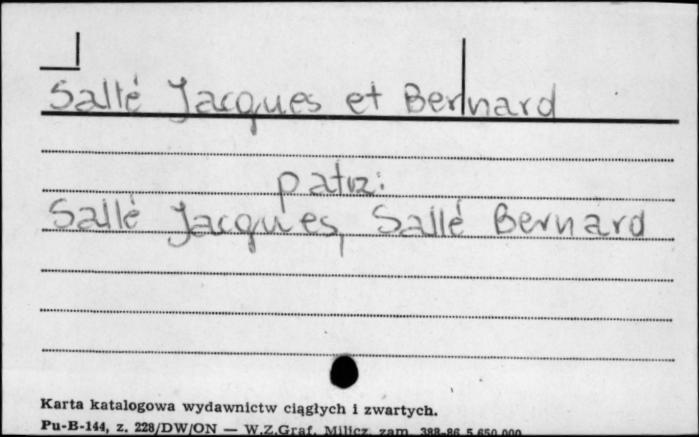 Sallé Jacques et Bernard
patrz:
Sallé Jacques, Sallé Bernard
Karta katalogowa wydawnictw ciągłych i zwartych.
Pu-B-144, z. 228/DW/ON — W.Z.Graf. Milicz zam. 388-86 5.650.000